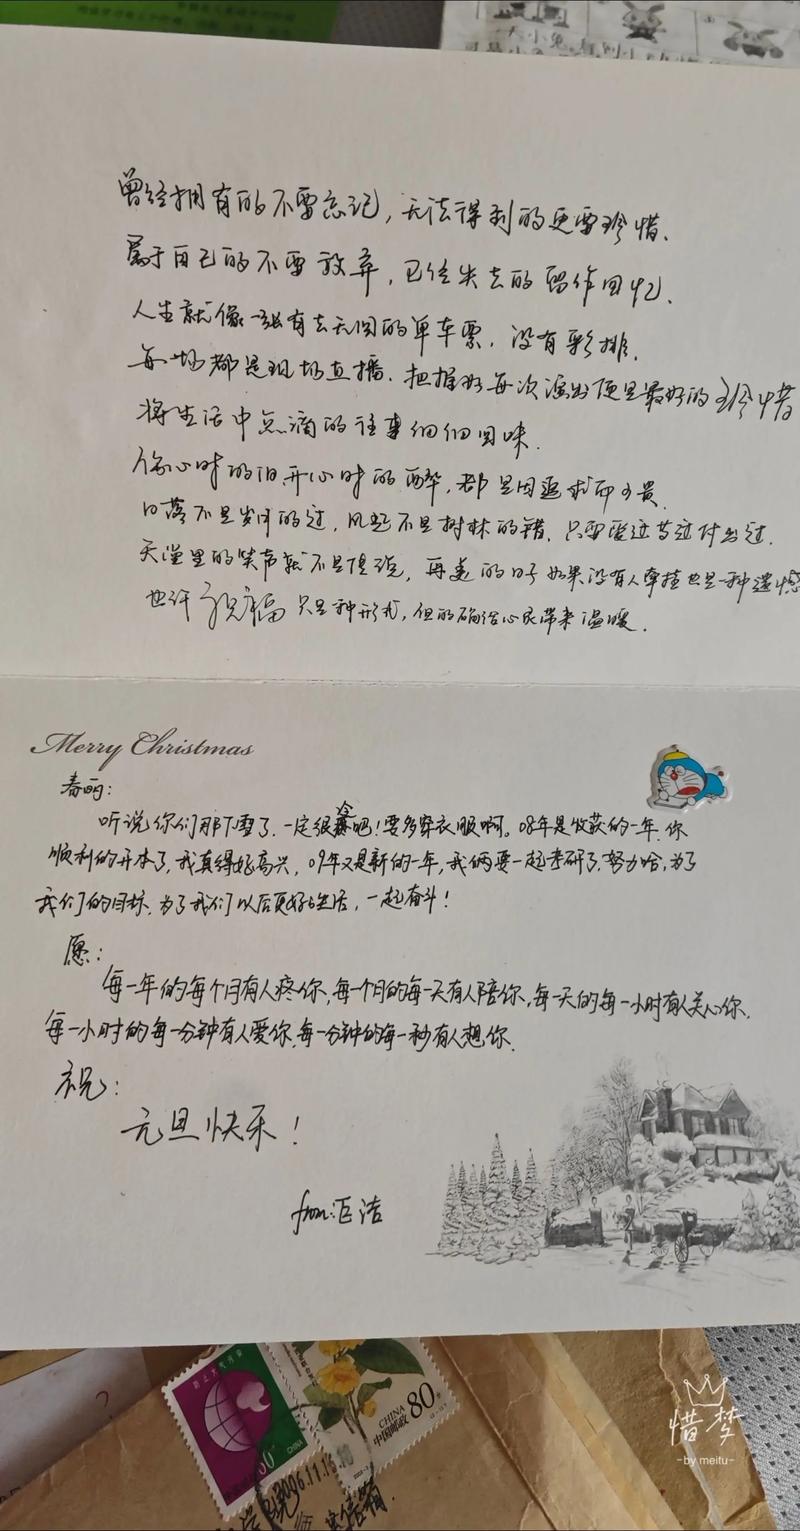 曾经拥有的不要忘记，无法得到的更要珍惜、
属于自己的不要放弃，已经失去的留作回忆、
人生就像一张有去无回的单车票，没有彩排、
每一场都是现场直播、把握好每次演出便是最好的珍惜
将生活中点滴的往事细细回味、
伤心时的泪、开心时的醉，都是因追求而可贵、
日落不是岁月的过，风起不是树林的错、只要爱过等过付出过、
天堂里的笑声就不是传说，再美的日子如果没有人牵挂也是一种遗憾
也许祝福只是种形式，但的确给心灵带来温暖、
Merry Christmas
春雨：
听说你们那下雪了、一定很冷吧！要多穿衣服啊。08年是收获的一年、你
顺利的升本了，我真得好高兴，09年又是新的一年，我俩要一起考研了、努力哈，为了
我们的目标、为了我们以后更好的生活，一起奋斗！
愿：
每一年的每个月有人疼你，每一个月的每一天有人陪你，每一天的每一小时有人关心你、
每一小时的每一分钟有人爱你、每一分钟的每一秒有人想你、
祝：
元旦快乐！
from: 洁
CHINA
中国邮政
80
60
CHINA
惜梦
-by meitu-